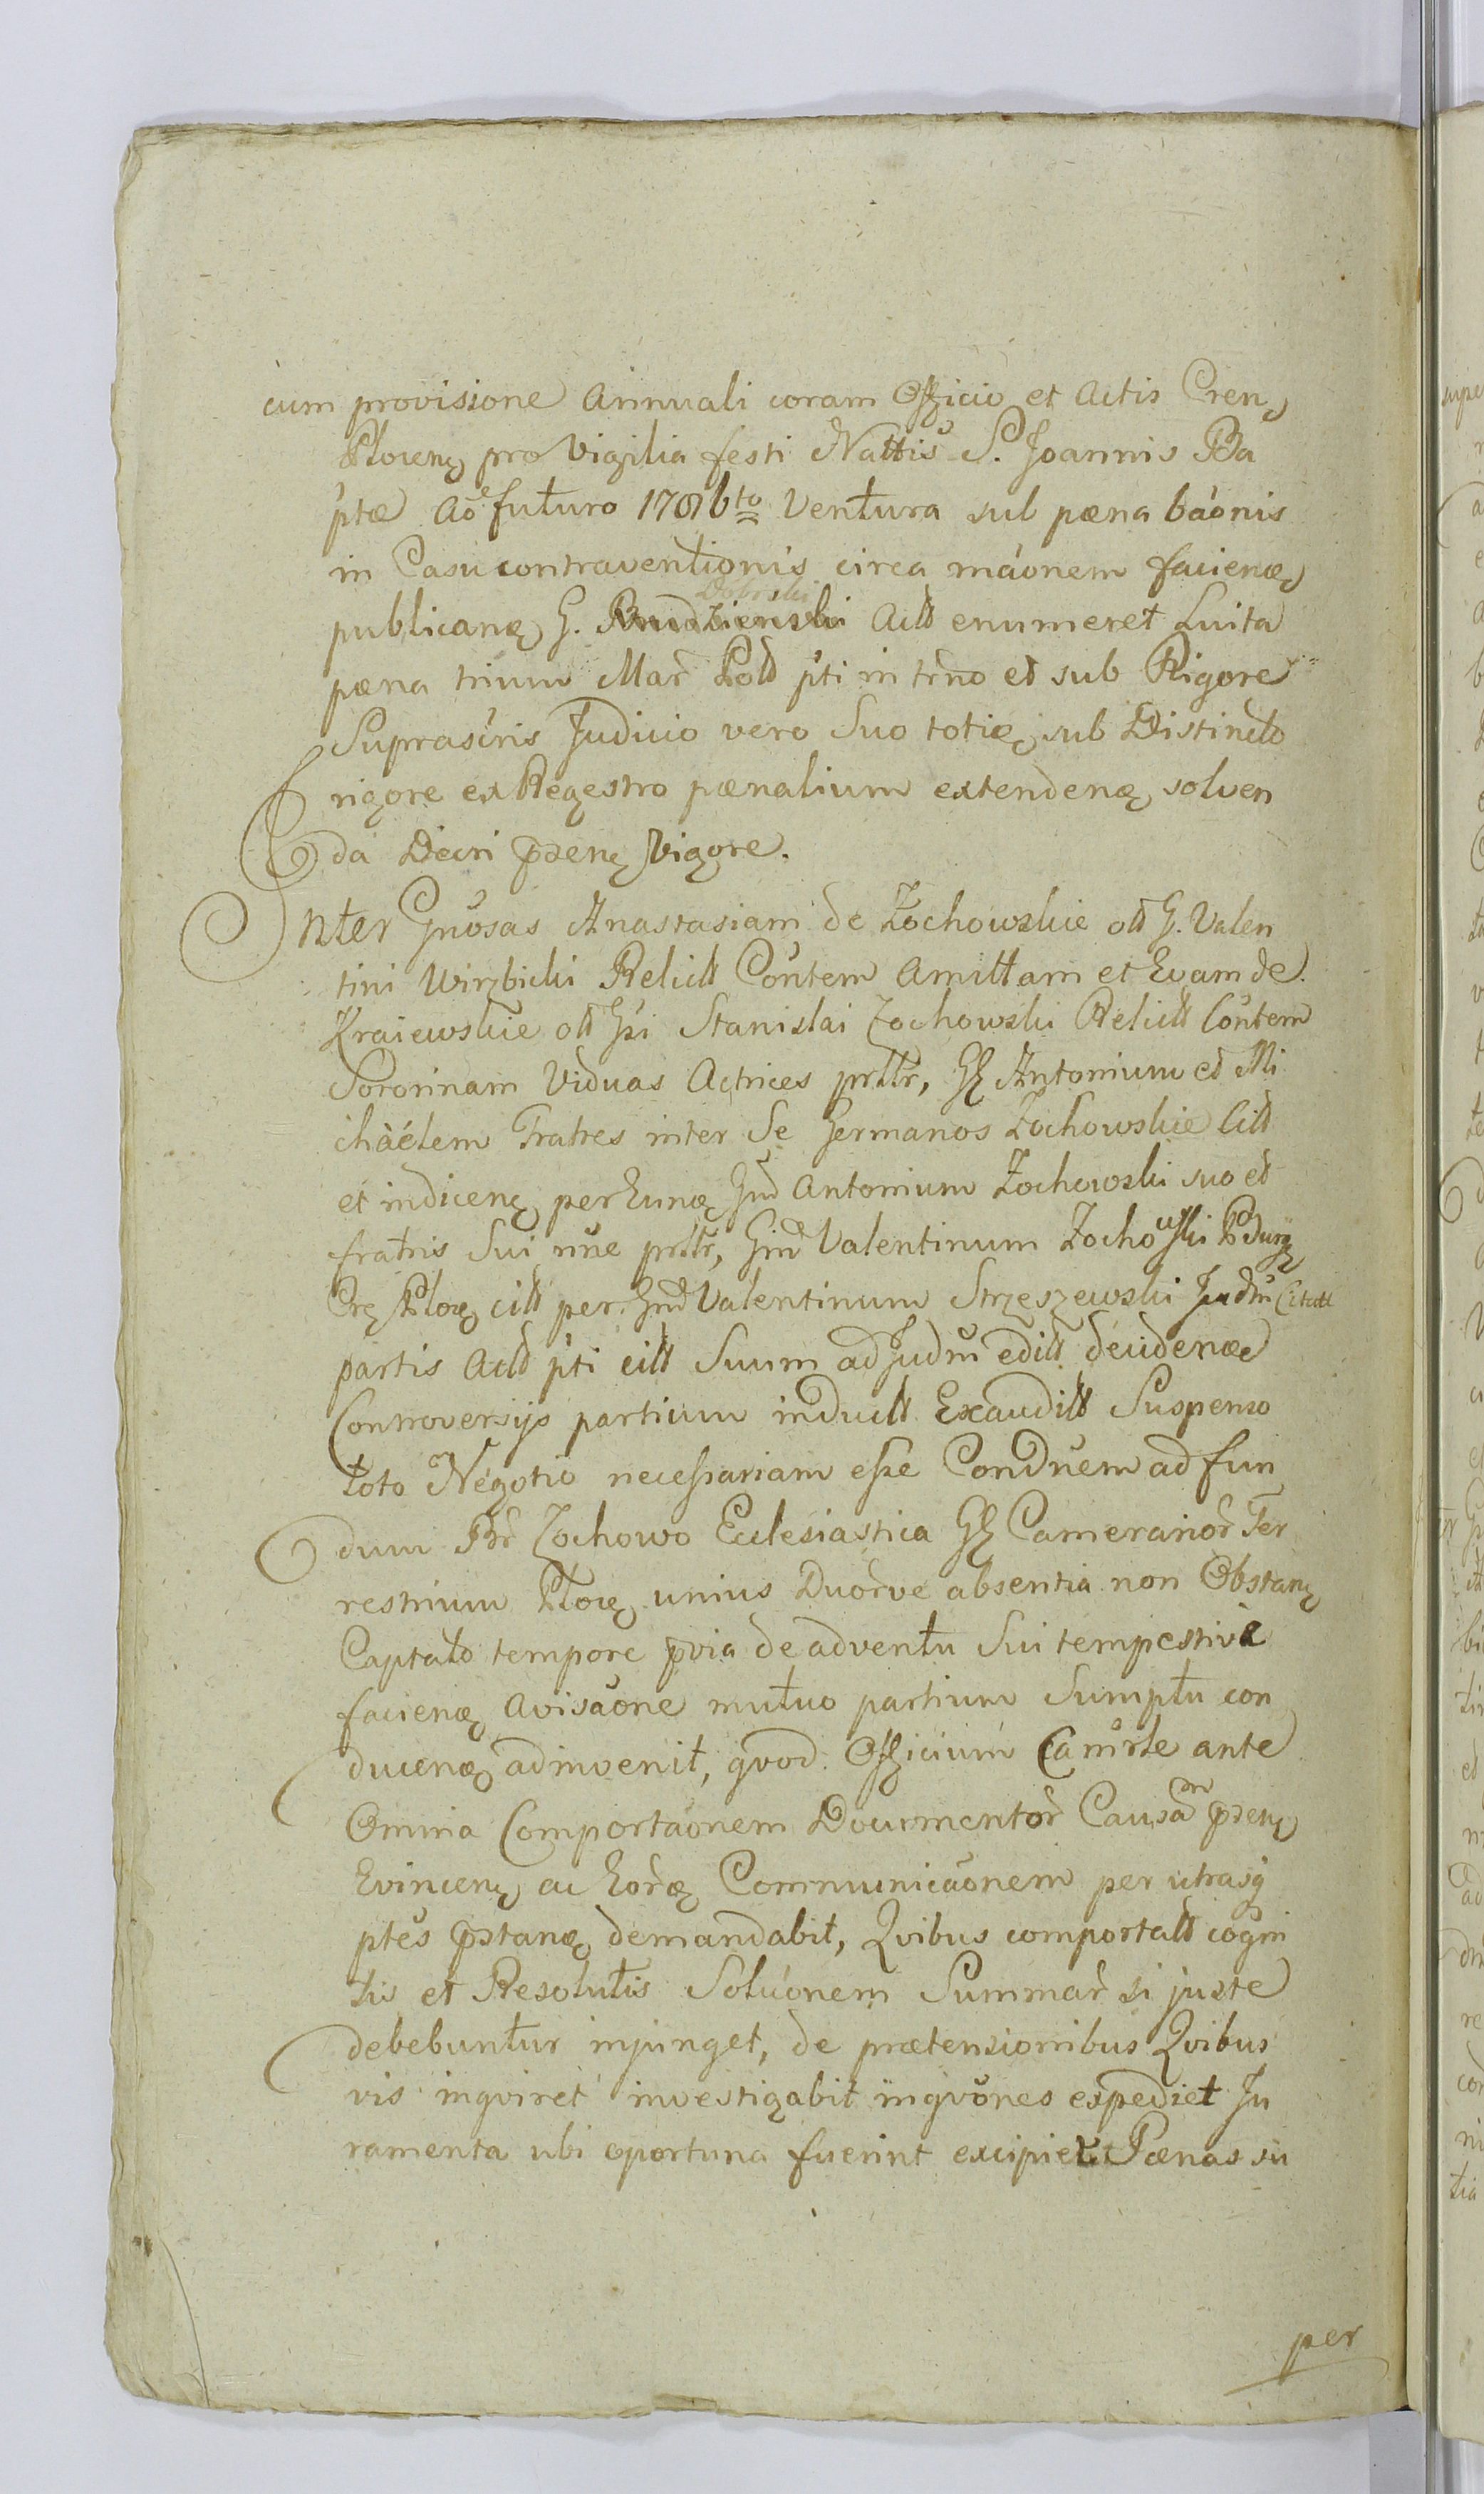 cum provisione Annuali coram Officio et Actis Cren
Plocen pro Vigilia festi Nattis S. Joannis Ba
ptæ Aõ futuro 1786to Ventura sub pæna báonis
in Casu contraventionis circa máonem facienæ
publicanæ G. Dobrski Actt enumeret Luita
pæna trium Mar Poll pti in trno et sub Rigore
Suprascris Judicio vero Suo totiæ sub Distincto
rigore ex Regestro pænalium extendenæ solven
da Decri præsen Vigore.
Inter Gnosas Anastasiam de Zochowskie ott G. Valen
tini Wirzbicki Relictt Contem Amittam et Evam de
Kraiewskie ott Gsi Stanislai Zochowski Relictt Contem
Sororinam Viduas Actrices prttr, GG Antonium et Mi
chàélem Fratres inter Se Germanos Zochowskie Citt
et indicen per Eunæ Gnd Antonium Zochowski suo et
fratris Sui nne prttr, Gnd Valentinum Zochowski Burg
Cre Ploce citt per Gnd Valentinum Strzeszewski Judm Citatt
partis Actt pti citt Suum ad Judm editt decidenæ
Controversijs partium inductt Exauditt Suspenso
toto Negotio necessariam esse Condnem ad fun
dum Br Zochowo Ecclesiastica GG Camerarior Ter
restrium Ploce unius Duorve absentia non Obstan
Captato tempore prvia de adventu Sui tempestivè
facienæ Avisáone mutuo partium Sumptu con
ducenæ adinvenit, qvod Officium Camrle ante
Omnia Comportáonem Documentor Causam præsen
Evincen ac Eoræ Communicáonem per utrasq
ptes præstanæ demandabit, Qvibus comportatt cogni
tis et Resolutis Solúonem Summar si juste
debebuntur injunget, de prætensionibus Qvibus
vis inqviret investigabit inqvónes expediet Ju
ramenta ubi oportuna fuerint excipiet Pænas su
per